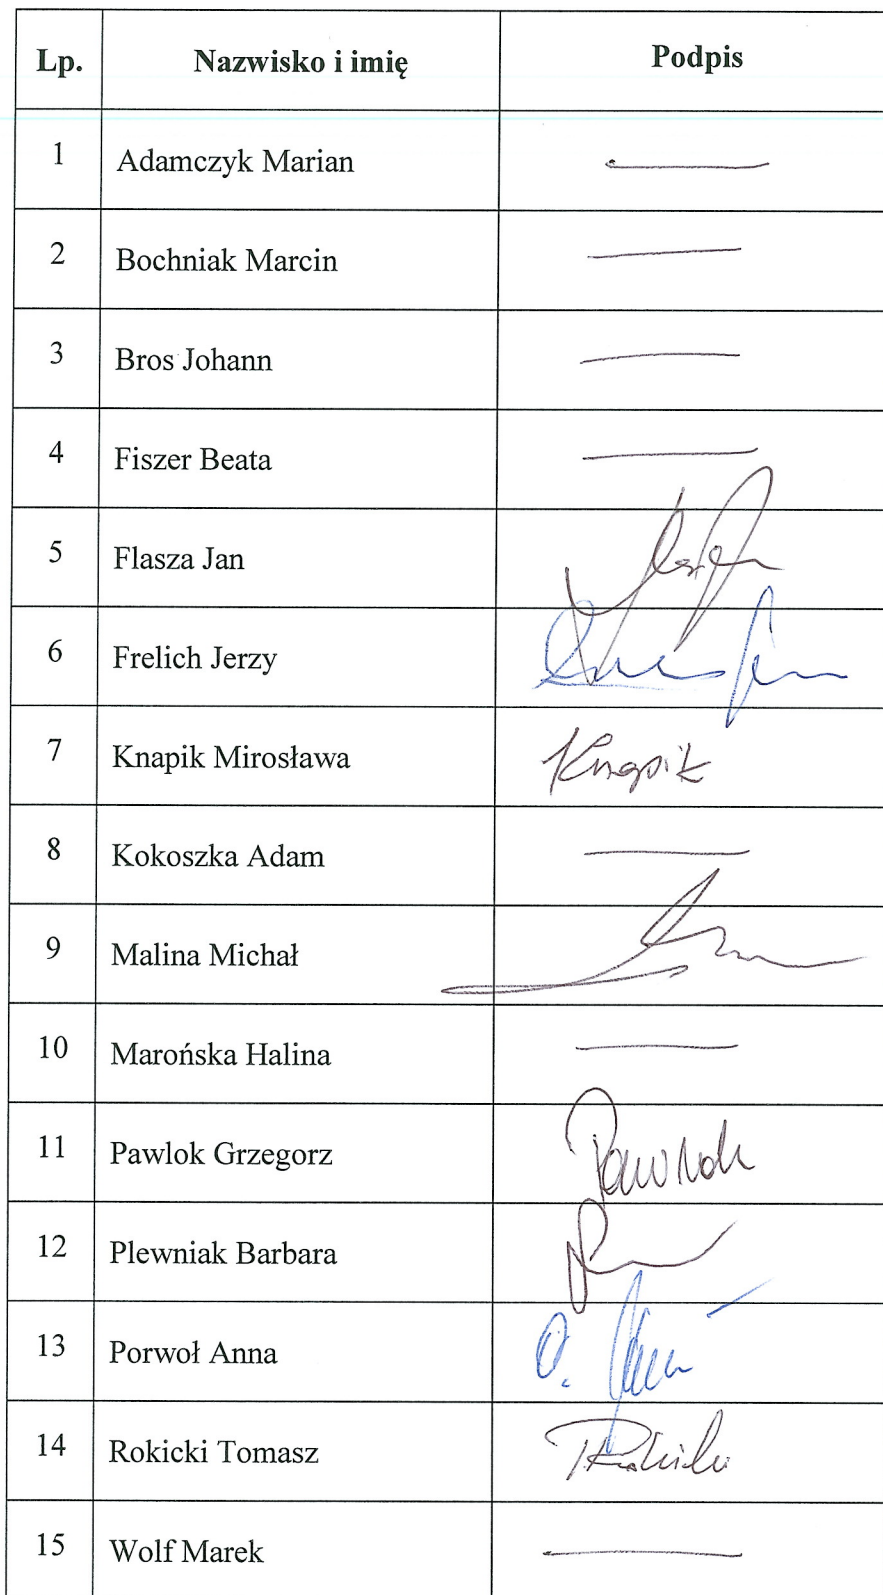 Lp. Nazwisko i imię Podpis
1 Adamczyk Marian —
2 Bochniak Marcin —
3 Bros Johann —
4 Fiszer Beata —
5 Flasza Jan
6 Frelich Jerzy
7 Knapik Mirosława Knapik
8 Kokoszka Adam —
9 Malina Michał
10 Marońska Halina —
11 Pawlok Grzegorz Pawlok
12 Plewniak Barbara
13 Porwoł Anna
14 Rokicki Tomasz TRokicki
15 Wolf Marek —